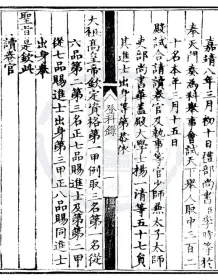 嘉靖八年三月初十日禮部尚書臣李時等於
奉天門奏為科舉事會試天下舉人取中三百二
十名本年三月十五日
殿試合請讀卷官及執事等官少師兼太子太師
吏部尚書華蓋殿大學士楊一清等五十七員
其進士出身等第恭依
登科錄
太祖高皇帝欽定資格第一甲例取三名第一名從
六品第二第三名正七品賜進士及第第二甲
從七品賜進士出身第三甲正八品賜同進士
出身奉
聖旨是欽此
讀卷官